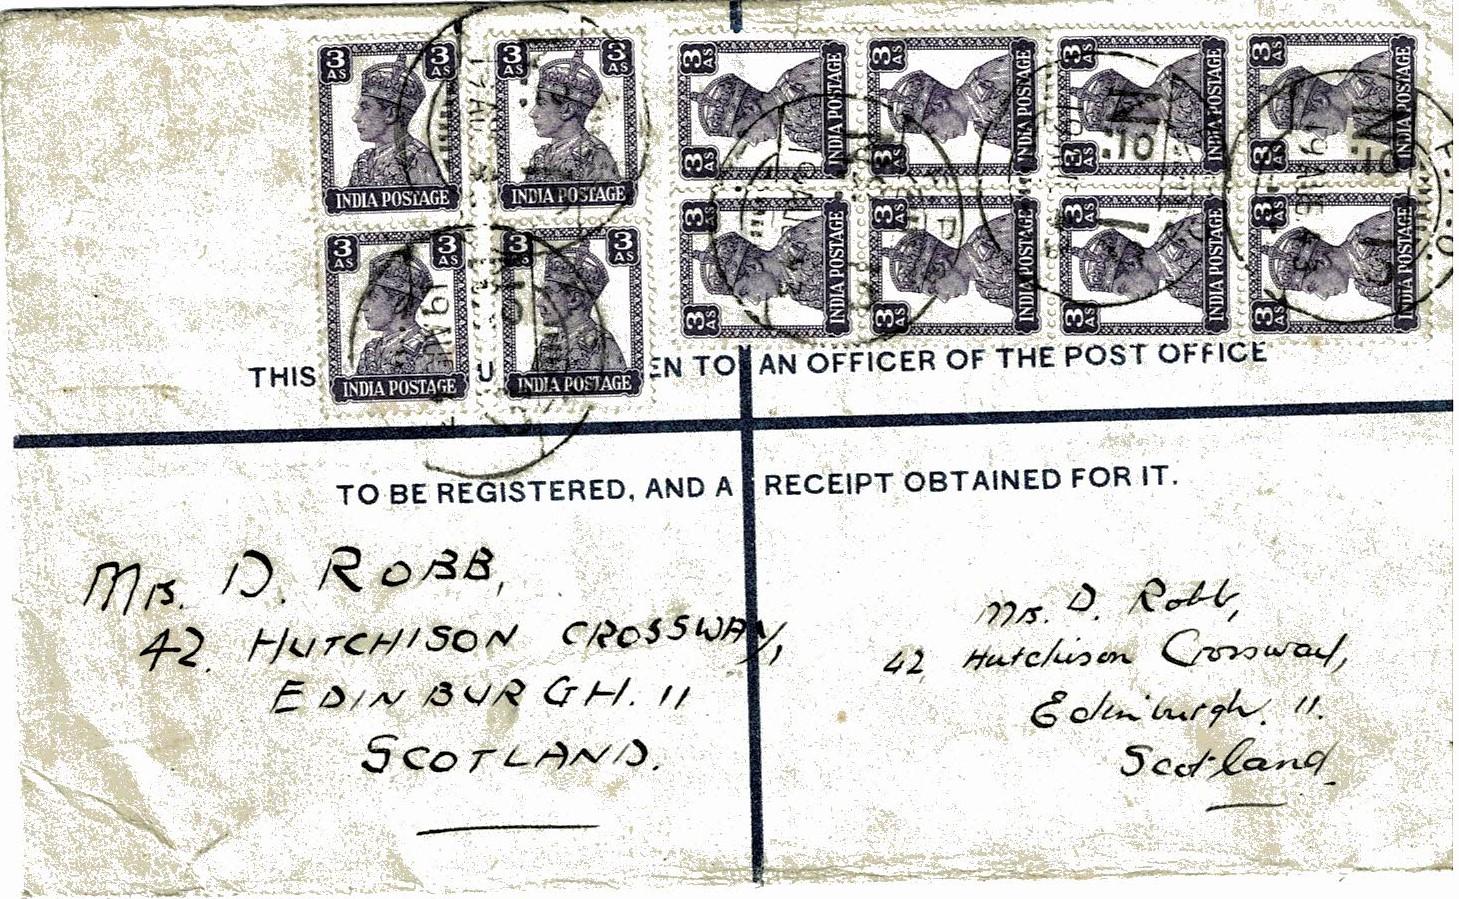 3 AS 3 AS 3 AS 3 AS
INDIA POSTAGE INDIA POSTAGE
3 AS 3 AS 3 AS 3 AS
INDIA POSTAGE INDIA POSTAGE
3 AS 3 AS INDIA POSTAGE 3 AS 3 AS INDIA POSTAGE 3 AS 3 AS INDIA POSTAGE 3 AS 3 AS INDIA POSTAGE
3 AS 3 AS INDIA POSTAGE 3 AS 3 AS INDIA POSTAGE 3 AS 3 AS INDIA POSTAGE 3 AS 3 AS INDIA POSTAGE
19 AUG
THIS EN TO AN OFFICER OF THE POST OFFICE
TO BE REGISTERED, AND A RECEIPT OBTAINED FOR IT.
Mrs. D. ROBB,
42. HUTCHISON CROSSWAY,
EDINBURGH. 11
SCOTLAND.
Mrs. D. Robb,
42 Hutchison Crossway,
Edinburgh. 11.
Scotland.